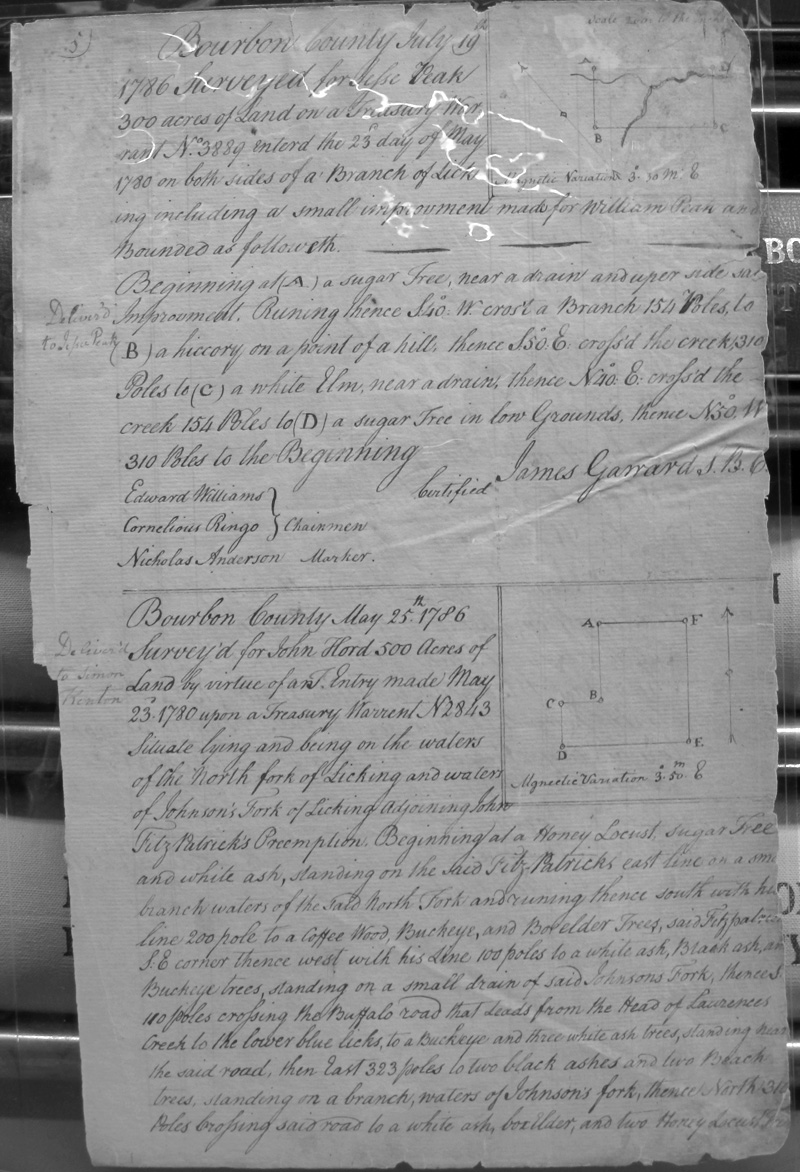 5
Scale
Bourbon County July 19th
1786 Surveyed for Jesse Peak
300 acres of Land on a Treasury War
rant No. 3889 enterd the 23d day of May
1780 on both sides of a Branch of Lick
A
D
B
C
Magnetic Variation 3° 50 m E
ing including a small improvment made for William Peak and
Bounded as followeth.
Delivd
to Jesse Peak
Beginning at (A) a sugar Tree, near a drain and uper side
Improvment. Runing thence S40° W. cross'd a Branch 154 Poles, to
(B) a hiccory on a point of a hill, thence S50° E: cross'd the creek, 310
Poles to (C) a white Elm, near a drain, thence N40° E: cross'd the
creek 154 Poles to (D) a sugar Tree in low Grounds, thence N50° W
310 Poles to the Beginning
Certified James Garrard S. B. C.
Edward Williams
Cornelious Ringo } Chainmen
Nicholas Anderson Marker.
Bourbon County May 25th 1786
Deliver'd
to Simon
Kenton
Survey'd for John Hord 500 Acres of
Land by virtue of an Entry made May
23d 1780 upon a Treasury Warrent N 2843
Situate lying and being on the waters
of the North fork of Licking and waters
of Johnson's Fork of Licking Adjoining John
A
F
B
C
D
E
Mgnectic Variation 3° 50 m E
Fitz Patrick's Preemption. Beginning at a Honey Locust, sugar Tree
and white ash, standing on the said Fitz Patrick's east line on a
branch waters of the said North Fork and runing thence south with his
line 200 pole to a Coffee Wood, Buckeye, and Box elder Trees, said Fitzpatrick
S. E corner thence west with his Line 100 poles to a white ash, Black ash, an
Buckeye trees, standing on a small drain of said Johnsons Fork, thence S
110 poles crossing the Buffalo road that leads from the Head of Lawrences
Creek to the lower blue licks, to a Buckeye and three white ash trees, standing near
the said road, then East 323 poles to two black ashes and two Beach
trees, standing on a branch, waters of Johnson's fork, thence North 310
Poles Crossing said road to a white ash, boxelder, and two Honey Locust